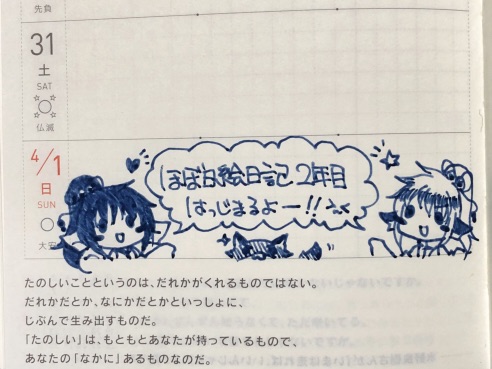 先負
31
土
SAT
仏滅
4/1
日
SUN
大安
ほぼ日絵日記2年目
はっじまるよー!!
たのしいことというのは、だれかがくれるものではない。
だれかだとか、なにかだとかといっしょに、
じぶんで生み出すものだ。
「たのしい」は、もともとあなたが持っているもので、
あなたの「なかに」あるものなのだ。